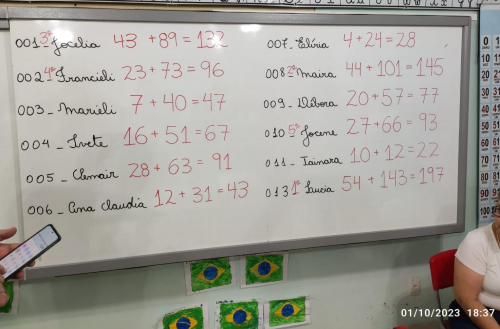 001 3º Jocelia 43 + 89 = 132
002 4º Francieli 23 + 73 = 96
003 - Marieli 7 + 40 = 47
004 - Ivete 16 + 51 = 67
005 - Clenair 28 + 63 = 91
006 - Ana Claudia 12 + 31 = 43
007 - Elíria 4 + 24 = 28
008 2º Maira 44 + 101 = 145
009 - Débora 20 + 57 = 77
010 5º Jocene 27 + 66 = 93
011 - Tainara 10 + 12 = 22
013 1º Lucia 54 + 143 = 197
01/10/2023 18:37